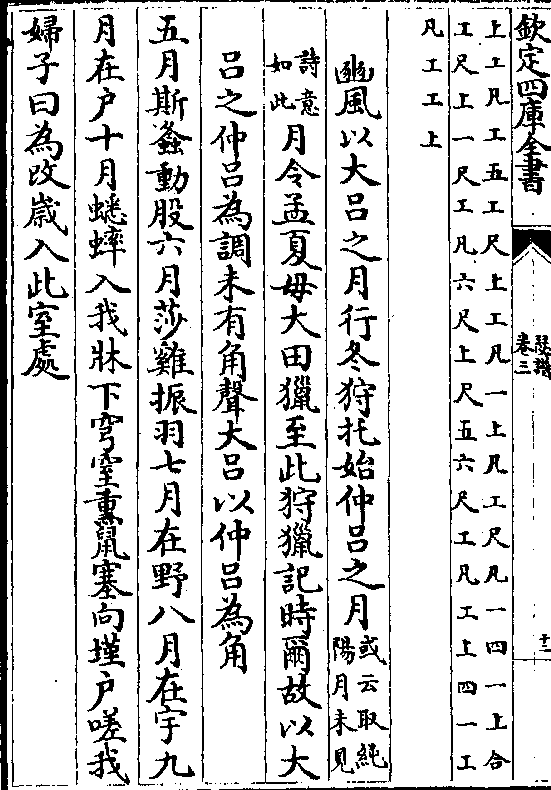 欽定四庫全書
瑟譜
卷三
十二
上工凡工五工尺上工凡一上凡工尺凡一四一上合
工尺上一尺工凡六尺上尺五六尺工凡工上四一工
凡工工上
豳風以大呂之月行冬狩托始仲呂之月或云取純陽月未見
詩意如此月令孟夏毋大田獵至此狩獵記時爾故以大
呂之仲呂為調未有角聲大呂以仲呂為角
五月斯螽動股六月莎雞振羽七月在野八月在宇九
月在户十月蟋蟀入我牀下穹窒熏鼠塞向墐户嗟我
婦子曰為改歲入此室處